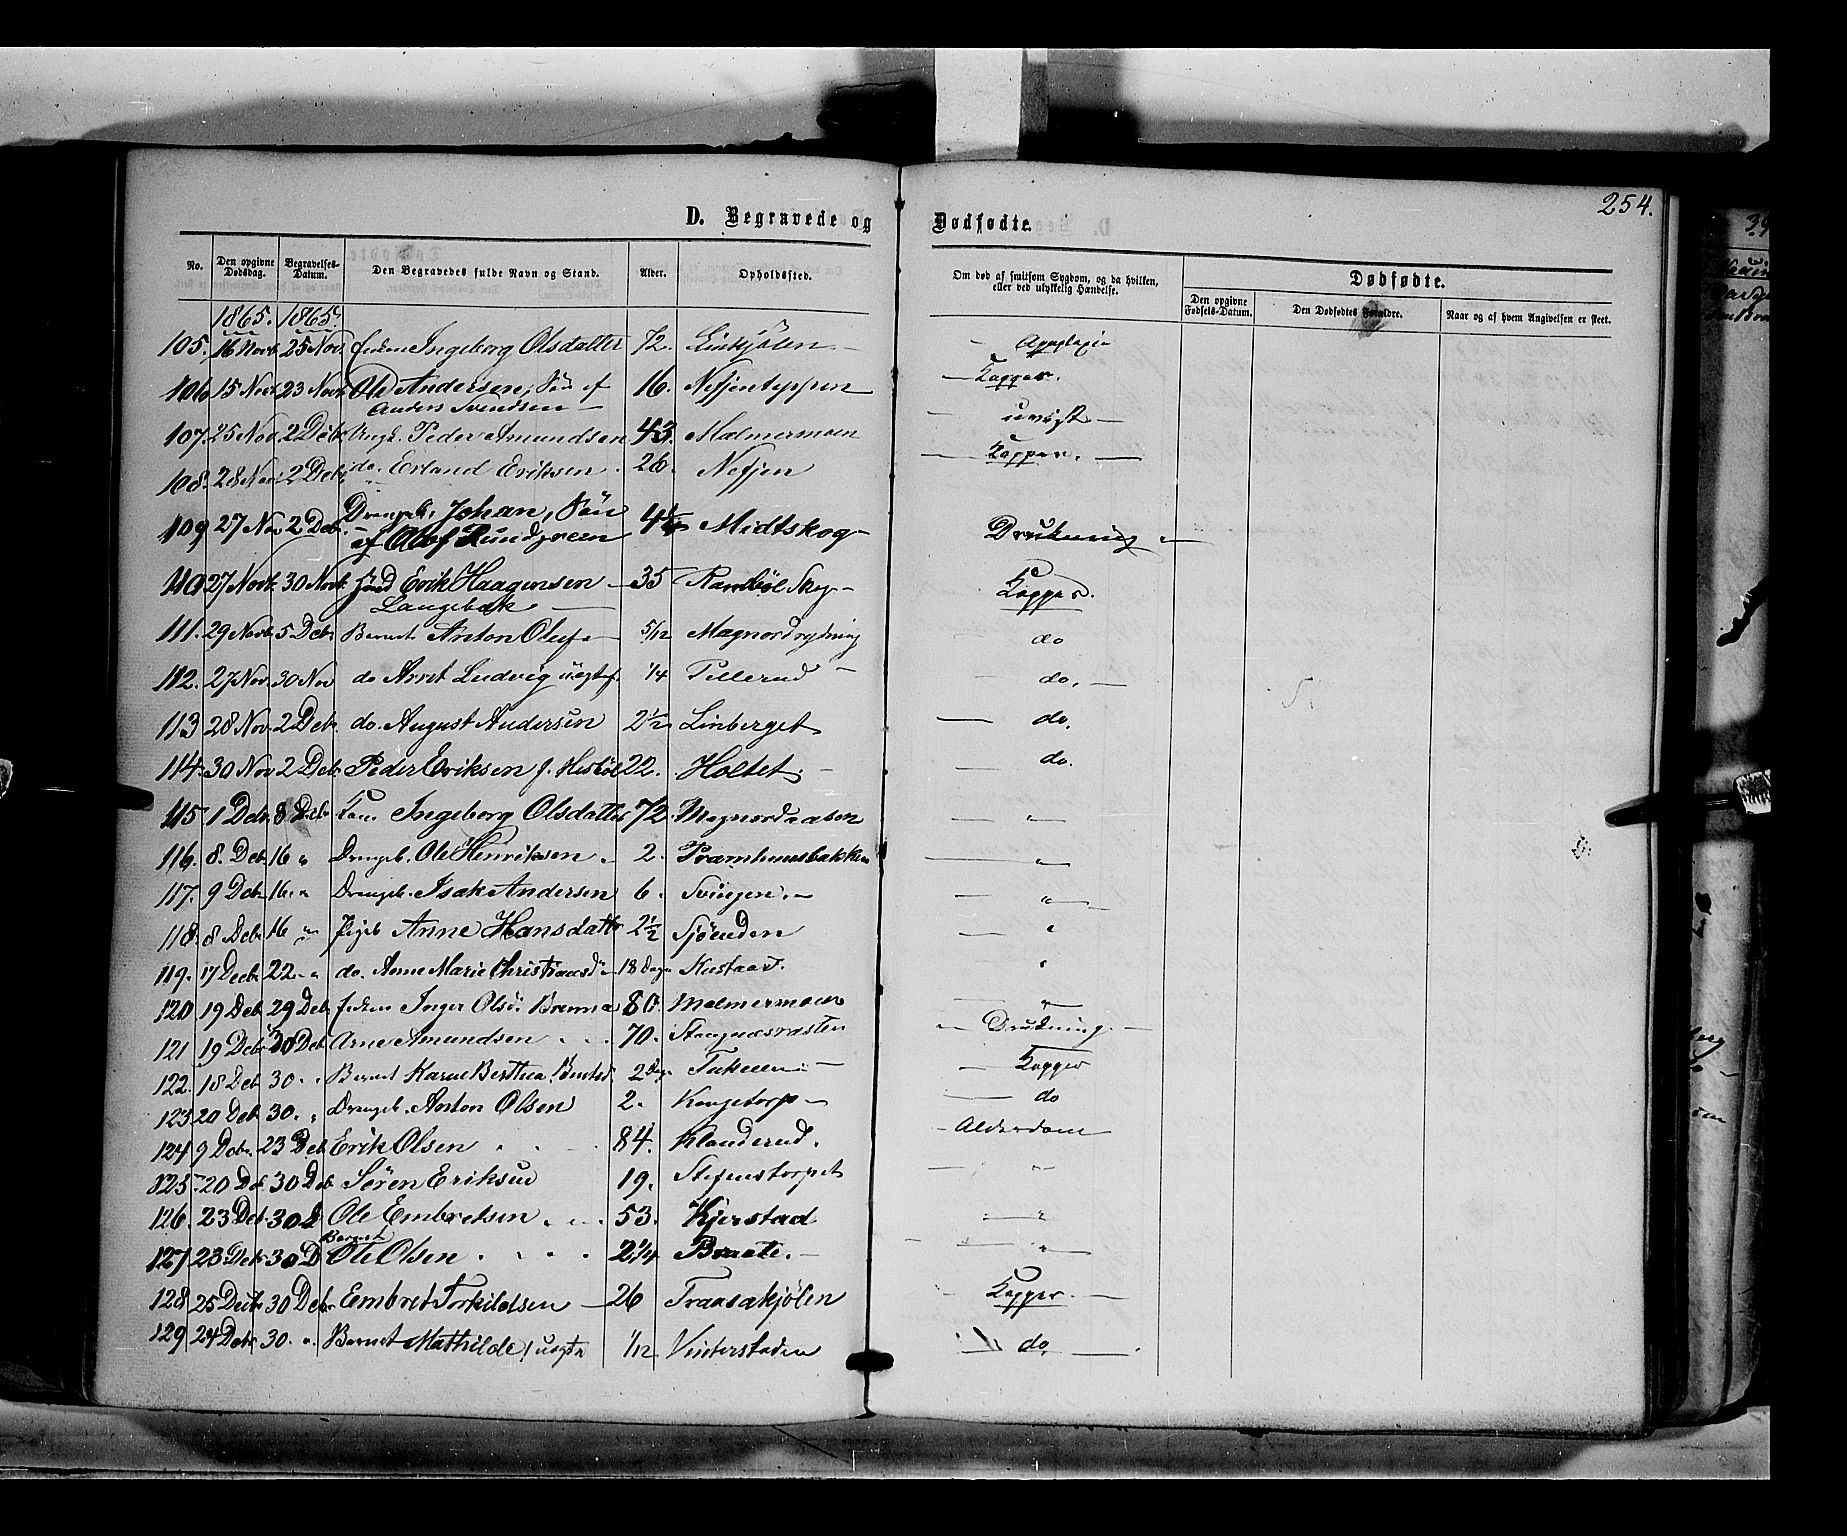 254.
D. Begravede og Dødfødte.
No. Den opgivne Dødsdag. Begravelses-Datum. Den Begravedes fulde Navn og Stand. Alder. Opholdssted. Om død af smitsom Sygdom, og da hvilken, eller ved ulykkelig Hændelse. Dødfødte.
Den opgivne Fødsels-Datum. Den Dødfødtes Forældre. Naar og af hvem Angivelsen er skeet.
1865. 1865.
105. 16 Novb 25 Nov Ingeborg Olsdatter 72. Linkjølen — Apoplexie
106 15 Nov 23 Novb Ole Andersen, Søn af 16. Nefjenteppen — Kopper.
Anders Svendsen —
107. 25 Nov. 2 Deb. Ungk. Peder Amundsen 43. Malmermoen — uvist —
108. 28 Nov 2 Deb. do. Erland Eriksen. 26. Nefjen — Kopper. —
109 27 Nov 2 Deb. Drengeb. Johan, Søn 4 Midtskog — Drukning —
af Olof
110 27 Novb. 30 Novb. Erik Haagensen — 35 Rambøl Skog — Kopper.
Langebæk —
111. 29 Novb 5 Deb. Barnet Anton Oluf — 5/12 Magnordrydning — do
112. 27 Nov. 30 Nov do Ludvig uægtef. 1/4 Pellerud — do. —
113 28 Nov. 2 Deb. do. August Andersen 2 1/2 Linberget — do.
114. 30 Nov 2 Deb. Peder Eriksen f. 22. Holtet. — do.
115. 1 Deb. 8 Deb Kone Ingeborg Olsdatter 72. Magnordaasen — "
116. 8. Deb. 16 " Drengeb. Ole Henriksen. 2. Pramhuusbakken — "
117. 9 Deb. 16. " Drengeb. Isak Andersen 6. Svingen. — "
118. 8 Deb. 16 " Pigeb Anne Hansdatter 2 1/2 Sjöenden "
119. 17 Decb. 22. " do. Anne Marie Christiansd — 18 Dage "
120. 19 Deb 29 Deb. Inger Olsd. Brenna 80. Malmermoen — "
121 19 Deb. 30 Deb. Arne Amundsen 70. — Drukning. —
122. 18 Deb. 30. " Barnet Karen Berthea 2 Dage — Kopper
123. 20 Deb. 30. " Drengeb. Anton Olsen 2. Kongetorp — do
124. 9 Deb. 23 Deb. Erik Olsen 84. Klanderud. — Alderdom
125. 20 Deb 30 Deb Søren Eriksen 19. Stefenstorpet — "
126. 23 Deb. 30 D Ole Embretsen 53. Kjerstad — "
127. 23 Deb. 30 D Barnet Ole Olsen 2 1/4 Braate. — "
128. 25 Decb. 30 Deb. Embret Torkildsen — 26 Traasakjölen — Kopper. —
129 24 Deb. 30. " Barnet Mathilde, uægte 1/12 Vinterstøden — do. —